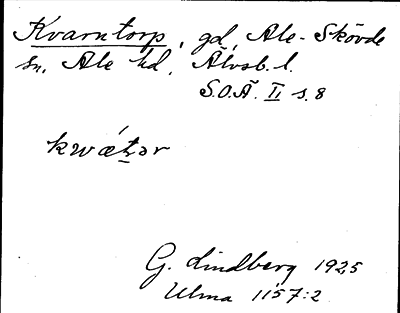 Kvarntorp, gd, Ale-Skövde
sn, Ale hd, Älvsb. l.
S.O.Ä. II s. 8
kwǽt̠ər
G. Lindberg 1925
Ulma 1157:2